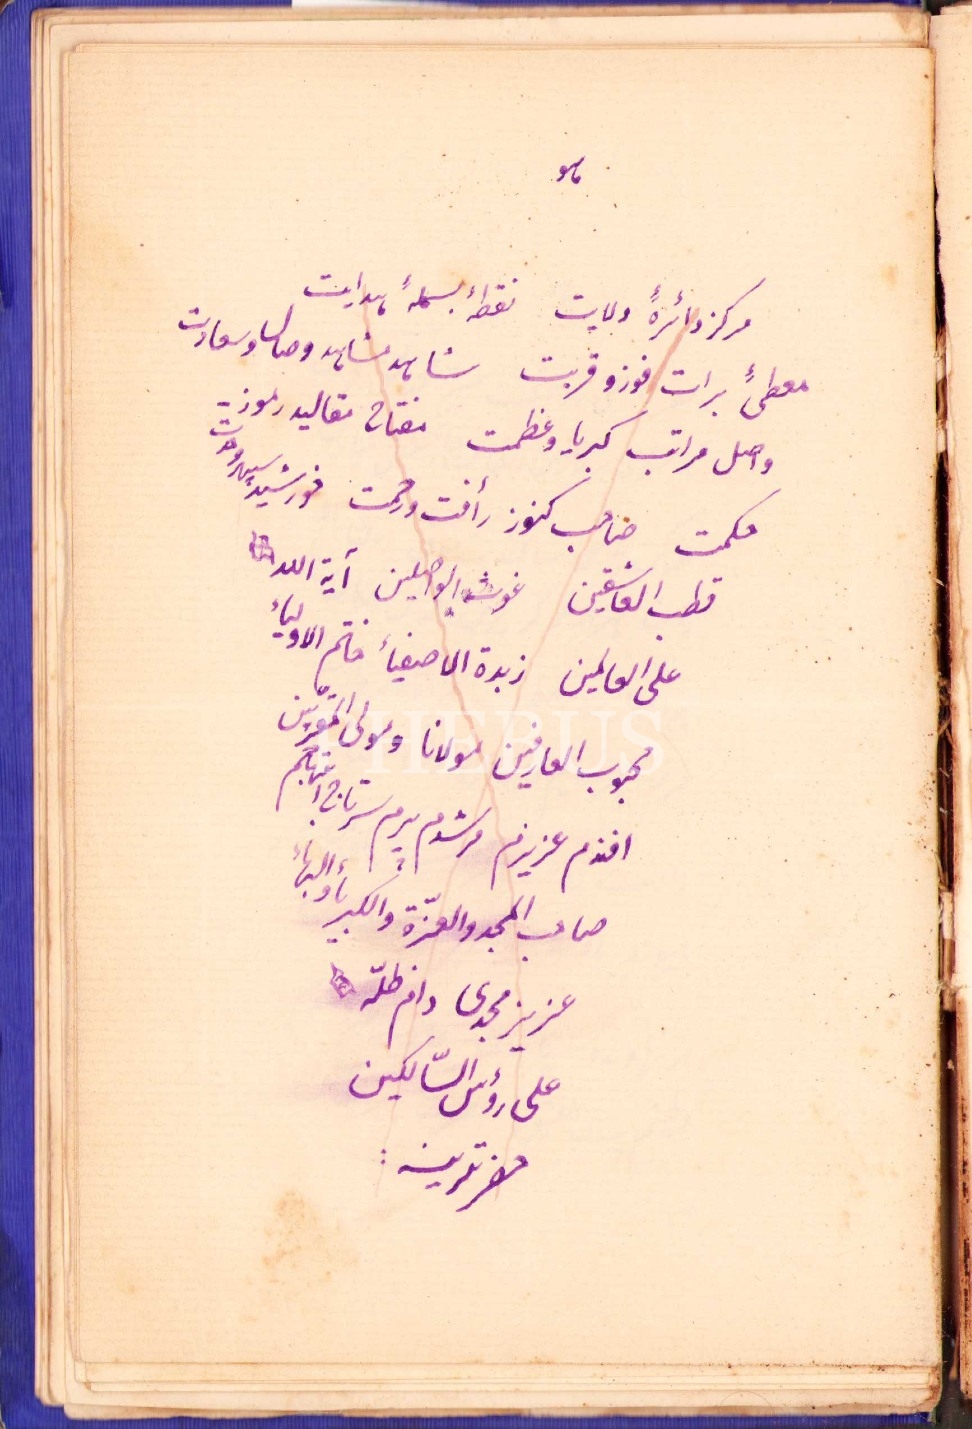 یاهو
مركز دائرهٔ ولایت نقطهٔ بسملهٔ هدایت
معطیٔ برات فوز و قربت شاهد مشاهد وصال و سعادت
واصل مراتب كبریا و عظمت مفتاح مقالید رموز
حكمت صاحب كنوز رأفت و رحمت خورشید سپهر وحدت
قطب العاشقین غوث الواصلین آیة الله
علی العالمین زبدة الاصفیاء خاتم الاولیاء
محبوب العارفین مولانا و مولی المقربین
افندم عزیزم مرشدم پیرم سرتاج ابتهاجم
صاحب المجد والعزّة والكبریاء والبهاء
عزیز مجدی دام ظلّه
علی رؤس السّالكین
حضرتلرینه :
PHEBUS